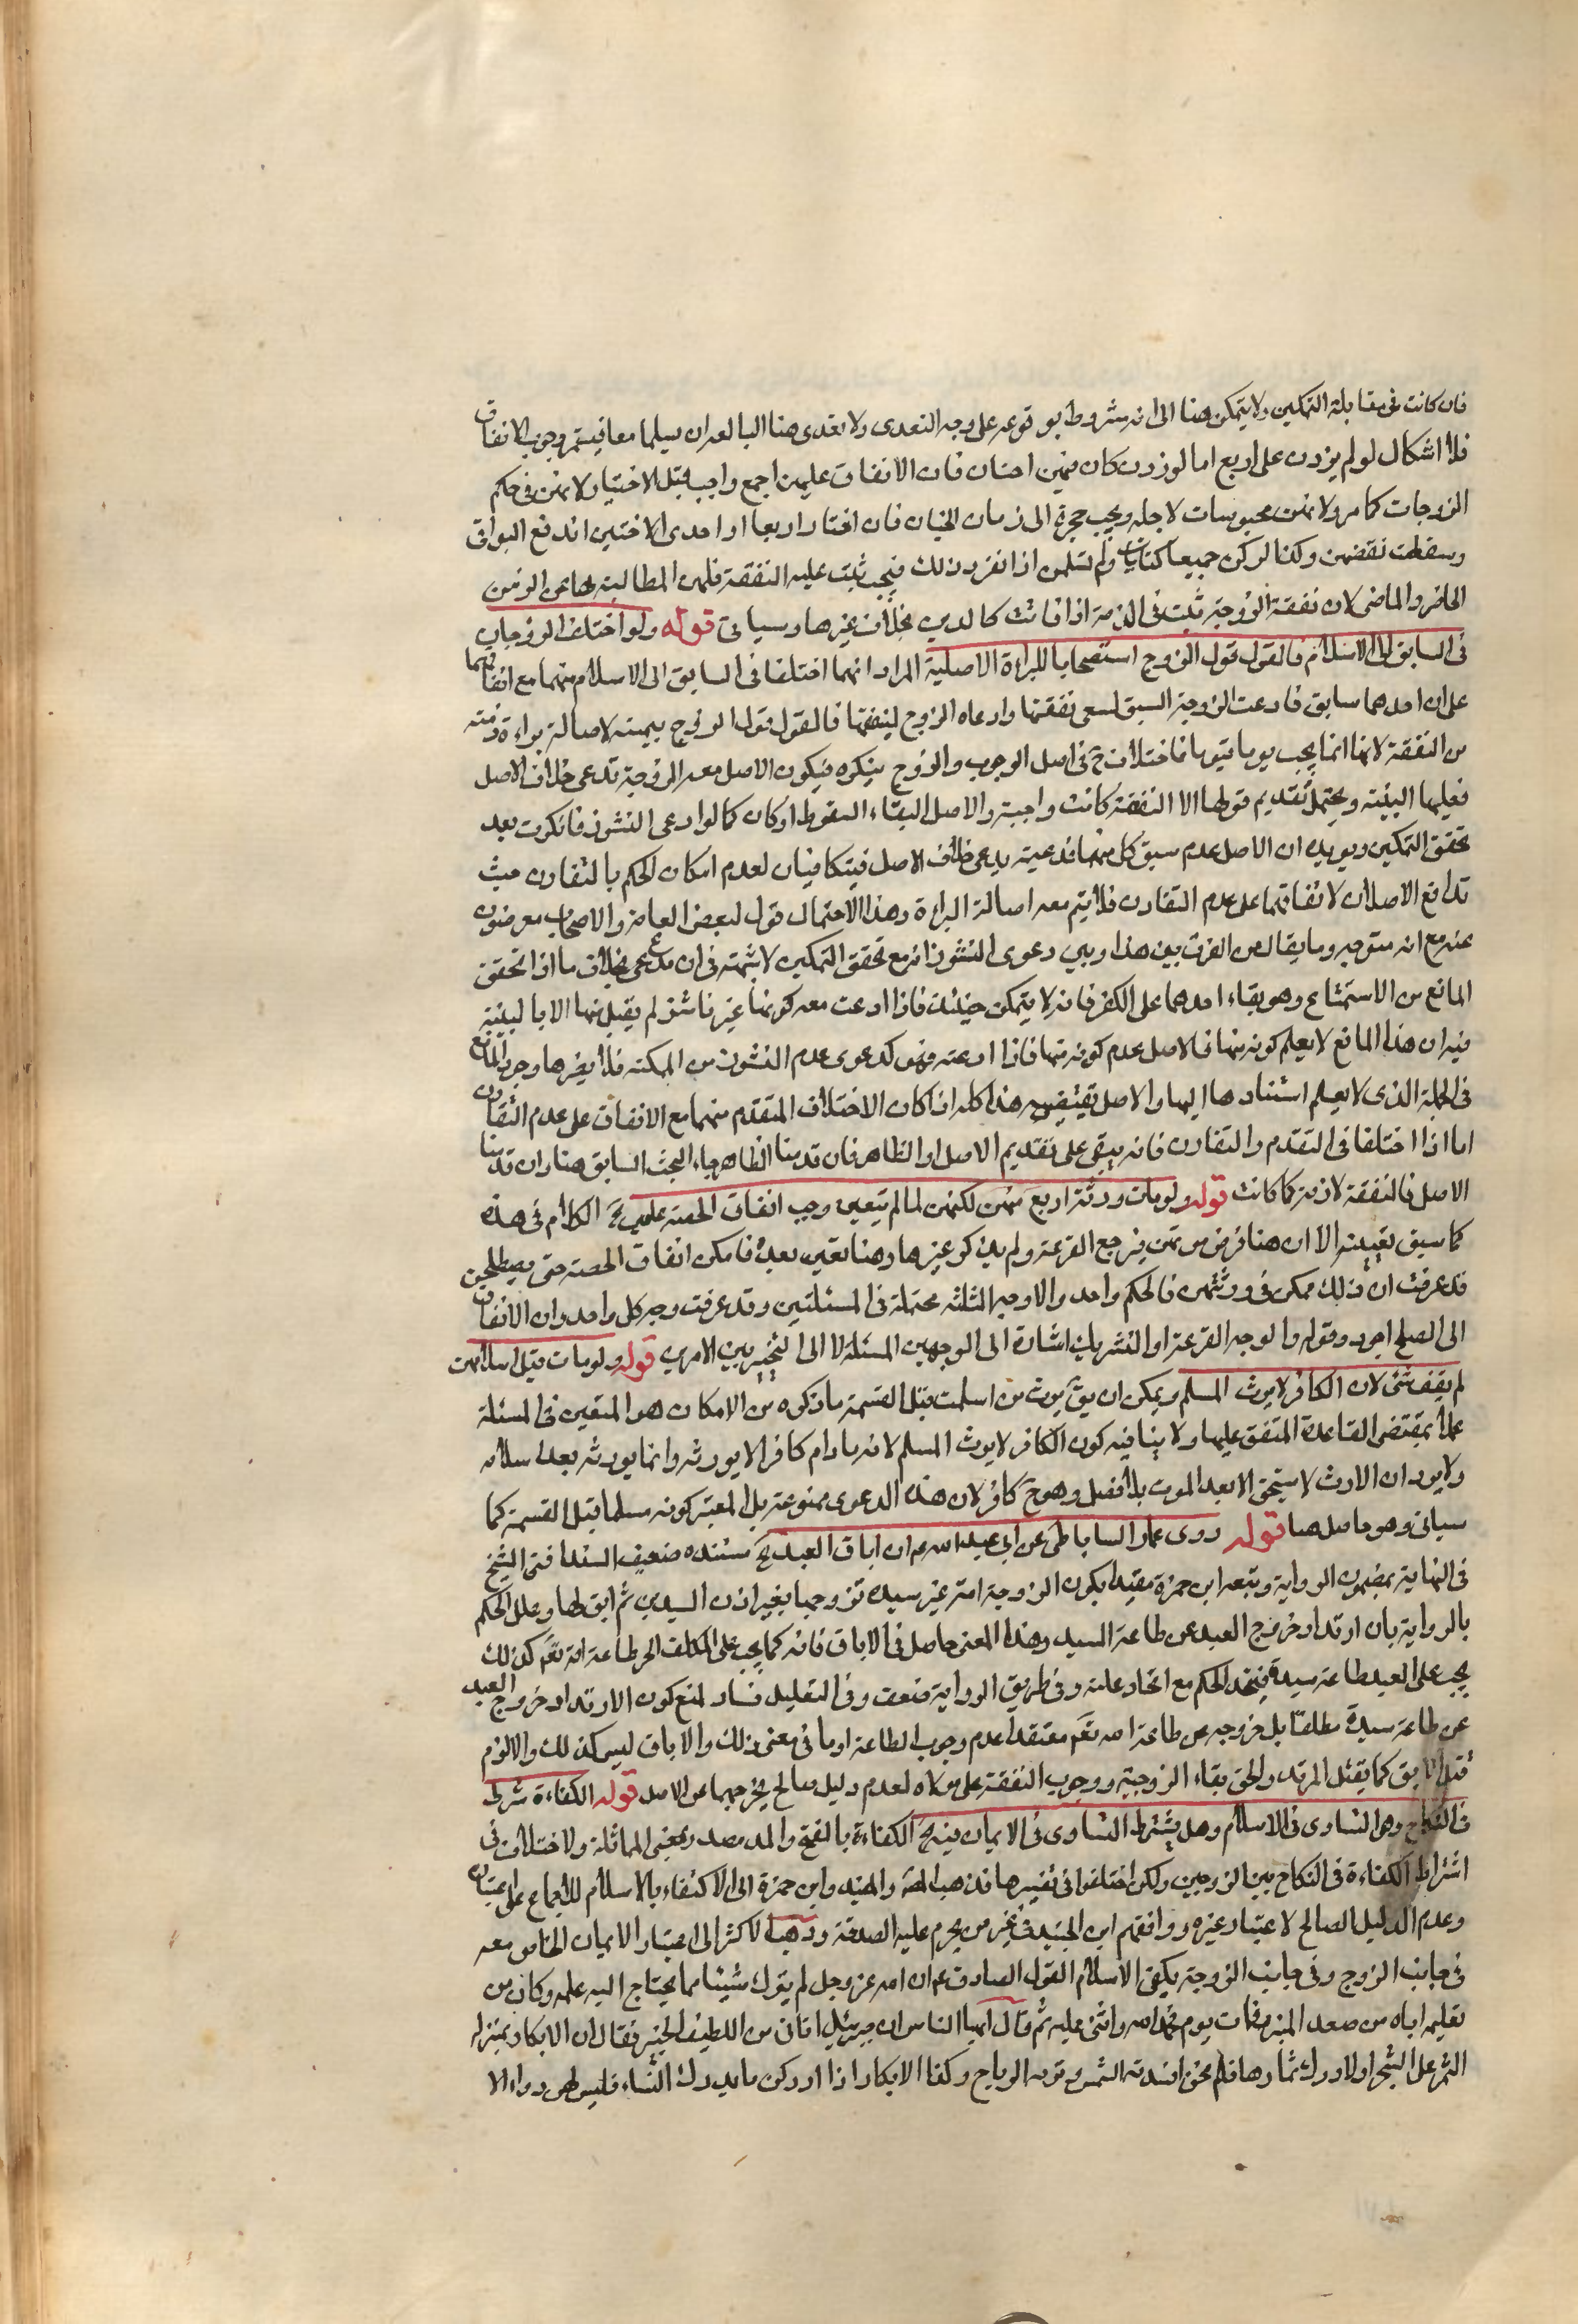 فان كانت في مقابلة التمكين ولا يتمكن هنا الى انه مشروط بوقوعه على وجه التعدى ولا تعدى هنا البالعدان يسلما معا فيستمر وجوب الانفاق
فلا اشكال لو لم يزدن على اربع اما لو زدن او كان فيهن اختان فان الانفاق عليهن اجمع واجب قبل الاختيار لانهن فى حكم
الزوجات كما مر ولانهن محبوسات لاجله ويجب حجره الى زمان الخيار فان اختار اربعا او احدى الاختين اندفع البواقى
وسقطت نفقتهن وكذا لو كن جميعا كتابيات ولم تسلمن اذا تقرر ذلك فيجب ثبت عليه النفقة فلهن المطالبة بها عن الزمن
الحاضر والماضى لان نفقة الزوجة تثبت فى الذمة اذا فاتت كالدين بخلاف غيرها وسياتى قوله ولو اختلف الزوجان
فى السابق الى الاسلام فالقول قول الزوج استصحابا للبراءة الاصلية المراد انهما اختلفا فى السابق الى الاسلام منهما مع اتفاقهما
على ان احدهما سابق فادعت الزوجة السبق لسعى نفقتها وادعاه الزوج لينفيها فالقول قول الزوج بيمينه لاصالة براءة ذمته
من النفقة لانها انما يجب يوما فيوما فاختلاف ح فى اصل الوجوب والزوج ينكره فيكون الاصل معه الزوجة تدعى خلاف الاصل
فعليها البينة ويحتمل تقديم قولها الا النفقة كانت واجبة والاصل البقاء السقوط اوكان كما لو ادعى النشوز فانكرت بعد
تحقق التمكين ويويده ان الاصل عدم سبق كل منهما فمدعيته يدعى خلاف الاصل فيتكافيان لعدم امكان الحكم بالتقارن حيث
تدافع الاصلان لاتفاقهما على عدم التقارن فلا يتم معه اصالة البراءة وهذا الاحتمال قول لبعض العامة والاصحاب معرضون
عنه مع انه متوجه وما يقال من الفرق بين هذا وبين دعوى النشوز انه مع تحقق التمكين لا شبهة فى ان مدعى بخلاف ما اذا تحقق
المانع من الاستمتاع وهو بقاء احدهما على الكفر فانه لا يتمكن حينئذ فاذا ادعت معه كونها غير ناشز لم يقبل منها الا بالبينة
فيه ان هذا المانع لا يعلم كونه منها فالاصل عدم كونه منها فاذا ادعته فهو كدعوى عدم النشوز من الممكنة فلا يضرها وجود المانع
فى الجملة الذى لا يعلم استنادها اليها والاصل يقتضيه هذا كله اذا كان الاختلاف المتقدم منهما مع الاتفاق على عدم التقارن
اما اذا اختلفا فى التقدم والتقارن فانه يبقى على تقديم الاصل او الظاهر فان قدمنا الظاهر جاء البحث السابق هنا وان قدمنا
الاصل فالنفقة لازمة كما كانت قوله ولو مات ورثه اربع منهن لكنهن لما لم يتعين وجب ايقاف الحصة عليهن الخ الكلام فى هذه
كما سبق تعيينه الا ان هنا فرض موتهن فيرجع القرعة ولم يذكر غيرها وهنا تعين بعد فامكن ايقاف الحصة حتى يصطلحن
قد عرفت ان ذلك ممكن فى ورثتهن فالحكم واحد والاوجه الثلثة محتملة فى المسئلتين وقد عرفت وجه كل واحد وان الايقاف
الى الصلح اجود وقوله والوجه القرعة او التشريك اشارة الى الوجهين المسئلة لا الى التخيير بين الامرين قوله ولو مات قبل اسلامهن
لم يقف شئ لان الكافر لا يرث المسلم ويمكن ان يق يرث من اسلمت قبل القسمة ما ذكره من الامكان هو المتعين فى المسئلة
عملا بمقتضى القاعدة المتفق عليها ولا ينافيه كون الكافر لا يرث المسلم لانه ما دام كافرا لا يورثه وانما يورثه بعد اسلامه
ولا يرد ان الارث لا يستحق الا بعد الموت بلا فصل وهو ح كافر لان هذه الدعوى ممنوعة بل المعتبر كونه مسلما قبل القسمة كما
سياتى وهو حاصل هنا قوله روى عمار الساباطى عن ابى عبد الله ع ان اباق العبد الخ مستنده ضعيف السند افتى الشيخ
فى النهاية بمضمون الرواية وتبعه ابن حمزة مقيدا بكون الزوجة امة غير سيده تزوجها بغير اذن السيدين ثم ابق لها وعلل الحكم
بالرواية بان ارتداد خروج العبد عن طاعة السيد وهذا المعنى حاصل فى الاباق فانه كما يجب على المكلف الحر طاعة الله تعم كذلك
يجب على العبد طاعة سيده فيتحد الحكم مع اتحاد علته وفى طريق الرواية ضعف وفى التعليل فساد لمنع كون الارتداد خروج العبد
عن طاعة سيده مطلقا بل خروجه عن طاعة الله تعم معتقدا عدم وجوب الطاعة او ما فى معنى ذلك والاباق ليس كذلك والا لزم
قتل الابق كما يقتل المرتد والحق بقاء الزوجية ووجوب النفقة على مولاه لعدم دليل صالح يخرجهما عن الاصل قوله الكفاءة شرط
فى النكاح وهى التساوى فى الاسلام وهل يشترط التساوى فى الايمان فيه الخ الكفاءة بالفتح والمد مصدر بمعنى المماثلة ولا اختلاف فى
اشتراط الكفاءة فى النكاح بين الزوجين ولكن اختلفوا فى تفسيرها فذهب المص والمفيد وابن حمزة الى الاكتفاء بالاسلام للاجماع على اعتباره
وعدم الدليل الصالح لاعتبار غيره ووافقهم ابن الجنيد فى غير من يحرم عليه الصدقة وذهب الاكثر الى اعتبار الايمان الخاص معه
فى جانب الزوج وفى جانب الزوجة يكفى الاسلام القول الصادق ع ان الله عز وجل لم يترك شيئا مما يحتاج اليه علمه وكان من
تعليمه اياه من صعد المنبر فات يوم فحمد الله واثنى عليه ثم قال ايها الناس ان جبرئيل اتانى من اللطيف الخبير فقال ان الابكار بمنزلة
الثمر على الشجر اولا ادرك ثمارها فلم تجتن افسدته الشمس ونثرته الرياح وكذا الابكار اذا ادركن ما يدرك النساء فليس لهن دواء الا